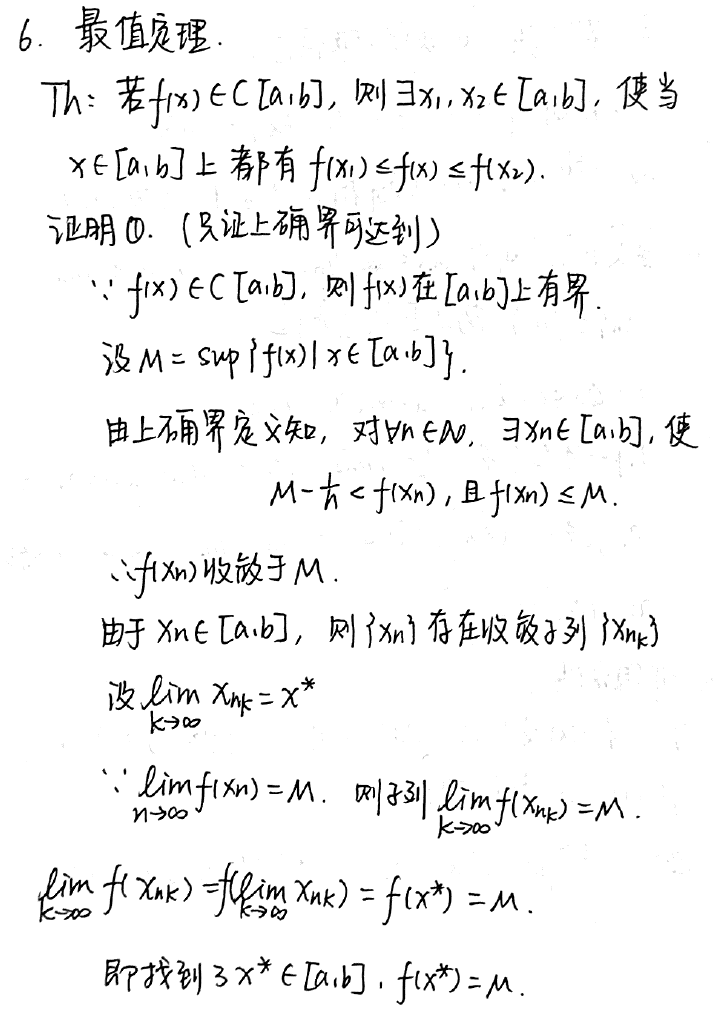 6. 最值定理.
Th: 若f(x)∈C[a,b], 则∃x₁,x₂∈[a,b], 使当
x∈[a,b]上都有 f(x₁)≤f(x)≤f(x₂).
证明①. (只证上确界可达到)
∵ f(x)∈C[a,b], 则f(x)在[a,b]上有界.
设 M = sup{f(x)|x∈[a,b]}.
由上确界定义知, 对∀n∈N, ∃xn∈[a,b], 使
M-1/n < f(xn), 且f(xn)≤M.
∴f(xn)收敛于M.
由于 xn∈[a,b], 则{xn}存在收敛子列{xnₖ}
设 lim k→∞ xnₖ = x*
∵ lim n→∞ f(xn) = M. 则子列 lim k→∞ f(xnₖ) = M.
lim k→∞ f(xnₖ) = f(lim k→∞ xnₖ) = f(x*) = M.
即找到了x*∈[a,b], f(x*)=M.